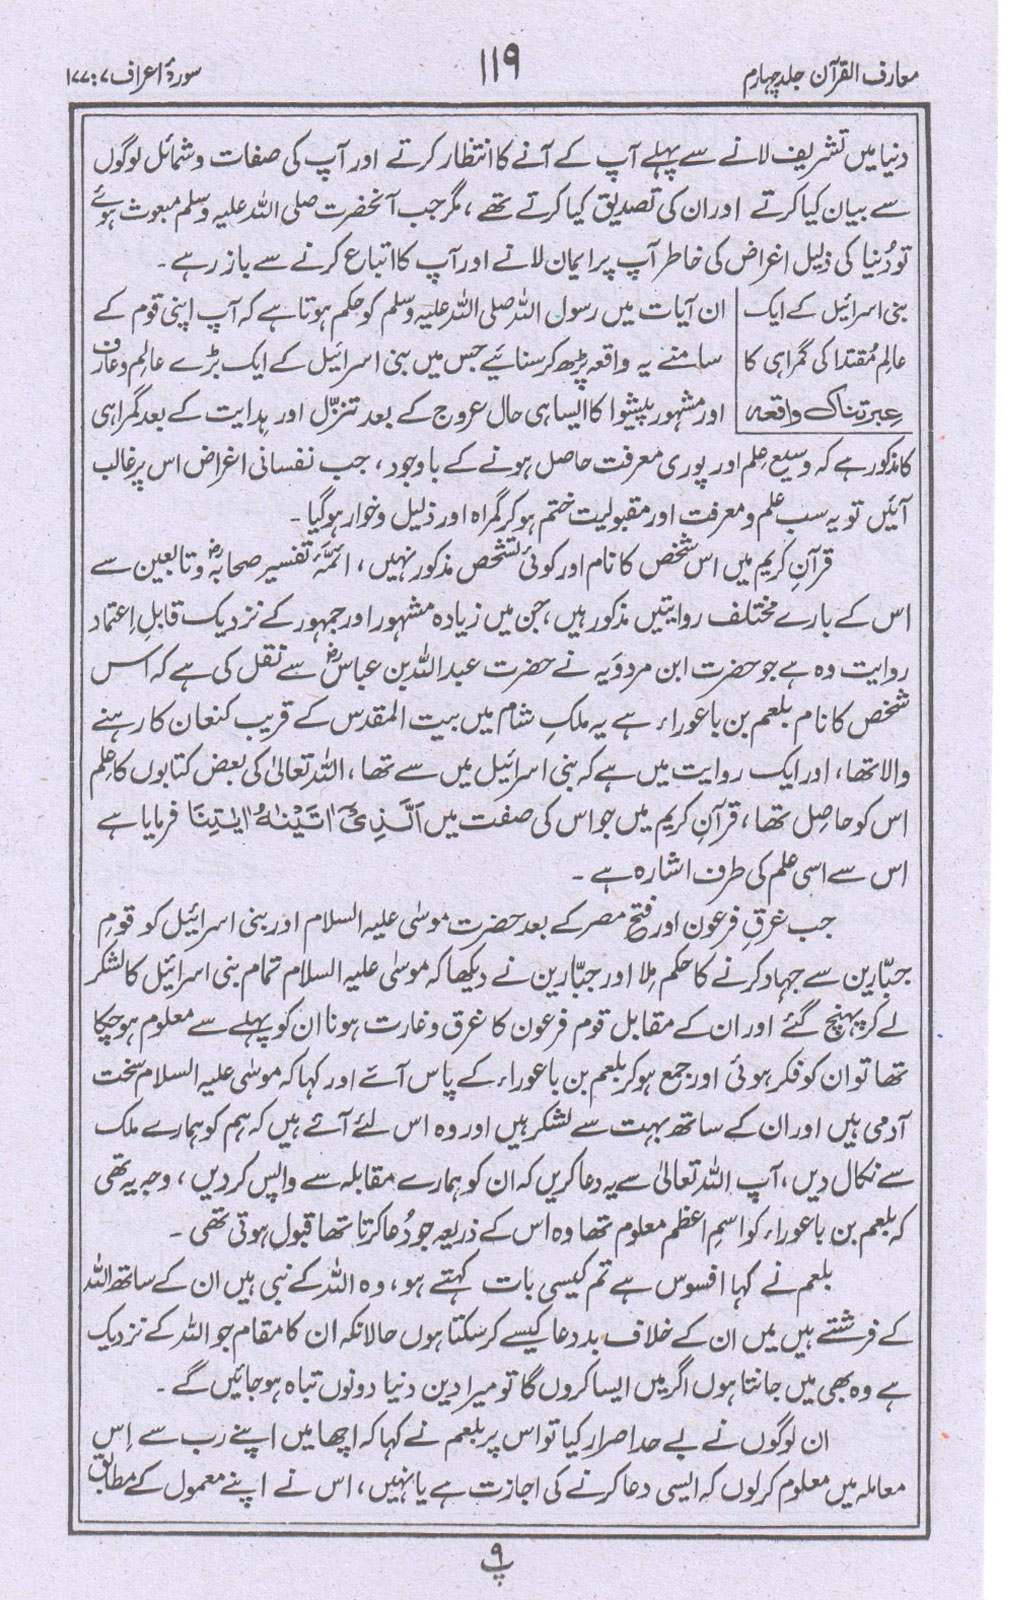 معارف القرآن جلد چہارم
۱۱۹
سورۂ اعراف ۷ : ۱۷۷
دنیا میں تشریف لانے سے پہلے آپ کے آنے کا انتظار کرتے اور آپ کی صفات و شمائل لوگوں
سے بیان کیا کرتے اور ان کی تصدیق کیا کرتے تھے ، مگر جب آنحضرت صلی اللہ علیہ وسلم مبعوث ہوئے
تو دُنیا کی ذلیل اغراض کی خاطر آپ پر ایمان لانے اور آپ کا اتباع کرنے سے باز رہے ۔
بنی اسرائیل کے ایک
عالم مُقتدا کی گمراہی کا
عبرتناک واقعہ
ان آیات میں رسول اللہ صلی اللہ علیہ وسلم کو حکم ہوتا ہے کہ آپ اپنی قوم کے
سامنے یہ واقعہ پڑھ کر سنائیے جس میں بنی اسرائیل کے ایک بڑے عالم و عارف
اور مشہور پیشوا کا ایسا ہی حال عروج کے بعد تنزّل اور ہدایت کے بعد گمراہی
کا مذکور ہے کہ وسیع عِلم اور پوری معرفت حاصل ہونے کے باوجود ، جب نفسانی اغراض اس پر غالب
آئیں تو یہ سب علم و معرفت اور مقبولیت ختم ہو کر گمراہ اور ذلیل و خوار ہوگیا ۔
قرآنِ کریم میں اس شخص کا نام اور کوئی تشخص مذکور نہیں ، ائمّۂ تفسیر صحابہؓ و تابعین سے
اس کے بارے مختلف روایتیں مذکور ہیں ، جن میں زیادہ مشہور اور جمہور کے نزدیک قابلِ اعتماد
روایت وہ ہے جو حضرت ابن مردوَیہ نے حضرت عبداللہ بن عباسؓ سے نقل کی ہے کہ اس
شخص کا نام بلعم بن باعوراء ہے یہ ملکِ شام میں بیت المقدس کے قریب کنعان کا رہنے
والا تھا ، اور ایک روایت میں ہے کہ بنی اسرائیل میں سے تھا ، اللہ تعالیٰ کی بعض کتابوں کا عِلم
اس کو حاصل تھا ، قرآن کریم میں جو اس کی صفت میں اَلَّذِیْٓ اٰتَیْنٰهُ اٰیٰتِنَا فرمایا ہے
اس سے اسی علم کی طرف اشارہ ہے ۔
جب غرقِ فرعون اور فتحِ مصر کے بعد حضرت موسیٰ علیہ السلام اور بنی اسرائیل کو قومِ
جبّارین سے جہاد کرنے کا حکم مِلا اور جبّارین نے دیکھا کہ موسیٰ علیہ السلام تمام بنی اسرائیل کا لشکر
لے کر پہنچ گئے اور ان کے مقابل قوم فرعون کا غرق و غارت ہونا ان کو پہلے سے معلوم ہوچکا
تھا تو ان کو فکر ہوئی اور جمع ہو کر بلعم بن باعوراء کے پاس آئے اور کہا کہ موسیٰ علیہ السلام سخت
آدمی ہیں اور ان کے ساتھ بہت سے لشکر ہیں اور وہ اس لئے آئے ہیں کہ ہم کو ہمارے ملک
سے نکال دیں ، آپ اللہ تعالیٰ سے یہ دعا کریں کہ ان کو ہمارے مقابلہ سے واپس کردیں ، وجہ یہ تھی
کہ بلعم بن باعوراء کو اسمِ اعظم معلوم تھا وہ اس کے ذریعہ جو دُعا کرتا تھا قبول ہوتی تھی ۔
بلعم نے کہا افسوس ہے تم کیسی بات کہتے ہو ، وہ اللہ کے نبی ہیں ان کے ساتھ اللہ
کے فرشتے ہیں میں ان کے خلاف بددعا کیسے کرسکتا ہوں حالانکہ ان کا مقام جو اللہ کے نزدیک
ہے وہ بھی میں جانتا ہوں اگر میں ایسا کروں گا تو میرا دین دنیا دونوں تباہ ہو جائیں گے ۔
ان لوگوں نے بے حد اصرار کیا تو اس پر بلعم نے کہا کہ اچھا میں اپنے رب سے اِس
معاملہ میں معلوم کرلوں کہ ایسی دعا کرنے کی اجازت ہے یا نہیں ، اس نے اپنے معمول کے مطابق
۹
پ